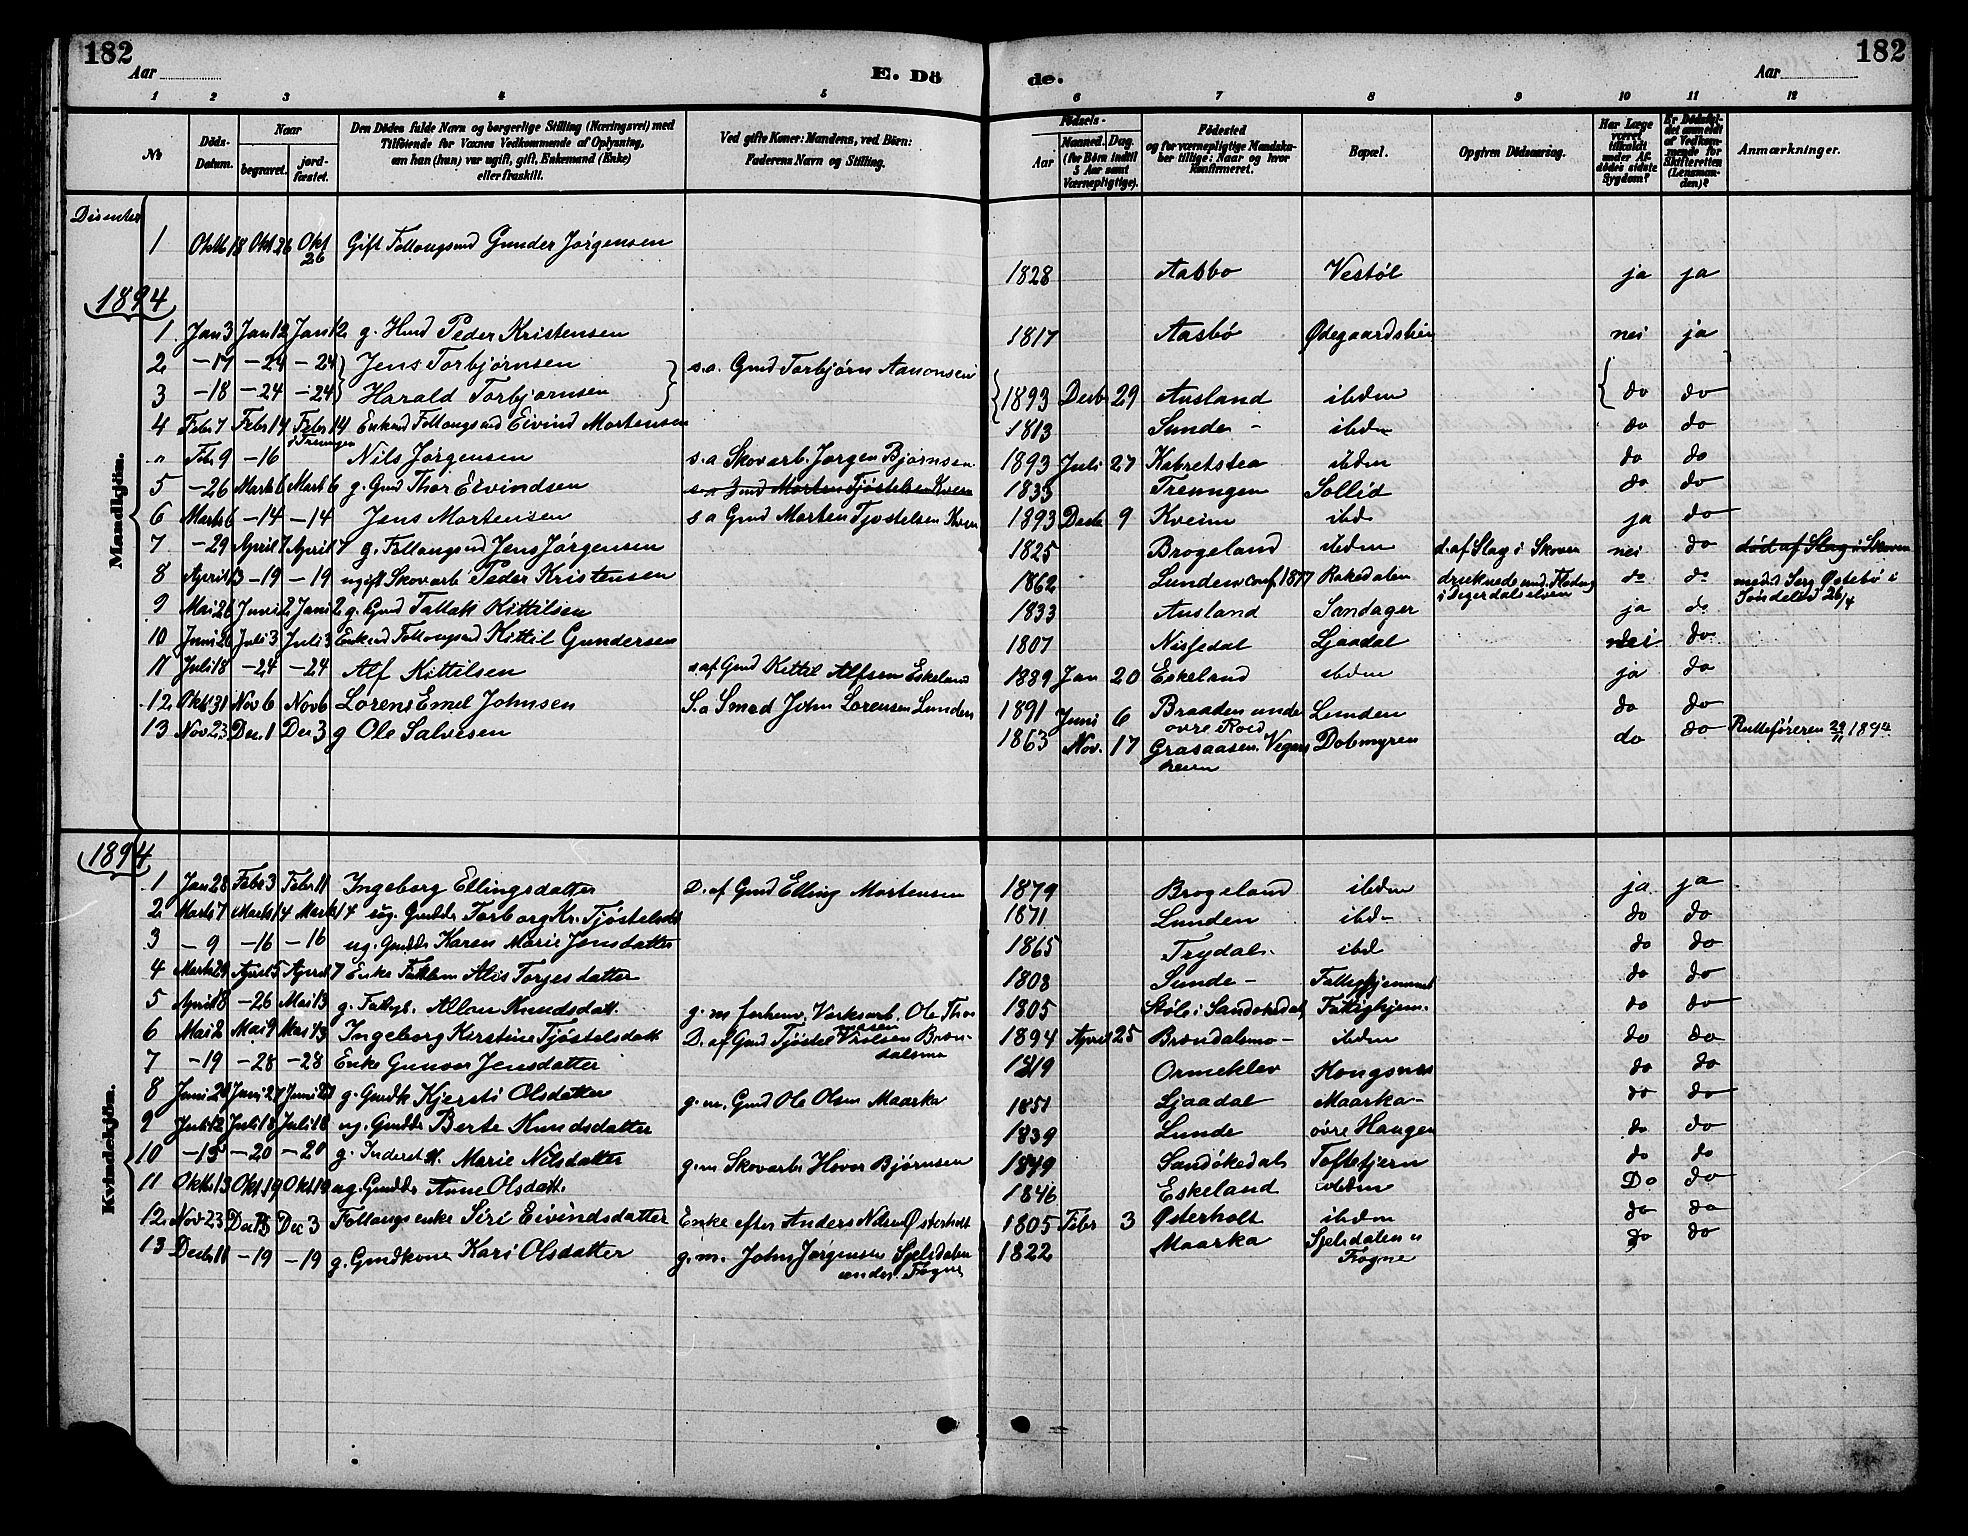 182
182
Aar
E. Dö
de.
Aar
1 2 3 4 5 6 7 8 9 10 11 12
No
Döds-Datum.
Naar
begravet.
jordfæstet.
Den Dödes fulde Navn og borgerlige Stilling (Næringsvei) med
Tilföiende for Voxnes Vedkommende af Oplysning,
om han (hun) var ugift, gift, Enkemand (Enke)
eller fraskilt.
Ved gifte Koner: Mandens, ved Börn:
Faderens Navn og Stilling.
Födsels-
Aar
Maaned. Dag.
(for Börn indtil
5 Aar samt
Værnepligtige).
Födested
og for værnepligtige Mandskaber tillige: Naar og hvor
konfirmeret.
Bopæl.
Opgiven Dödsaarsag.
Har Læge
været
tilkaldt
under Afdödes sidste
Sygdom?
Er Dödsfaldet anmeldt
af Vedkommende for
Skifteretten
(Lensmanden)?
Anmærkninger.
Mandkjön.
Disenter
1 Oktb 18 Okt 26 Okt 26 Gift Follaugsmd Gunder Jørgensen 1828 Aasbø Vestøl ja ja
1894
1 Jan 3 Jan 12 Jan 12 g. Hmd Peder Kristensen 1817 Aasbø nei ja
2 -17 -24 -24 Jens Torbjørnsen s.a. Gmd Torbjørn Aanonsen
3 -18 -24 -24 Harald Torbjørnsen 1893 Decbr 29 Ausland ibidem do do
4 Febr 7 Febr 14 Febr 14 Enkemd Follaugsmd Eivind Mortensen 1813 Sunde - ibidm do do
" Feb. 9 -16 i Treungen Nils Jørgensen s.a Skovarb. Jørgen Bjørnsen 1893 Juli 27 ibidem do do
5 -26 Marts 6 Mart 6 g. Gmd Thor Eivindsen 1833 Treungen Sollid do do
6 Marts 6 -14 -14 Jens Mortensen s a Gmd Morten Tjøstelsen Kveim 1893 Decbr 9 Kveim ibd. ja do
7 -29 April 7 April 7 g. Follaugsmd Jens Jørgensen 1825 Brogeland ibidem d. af Slag i Skoven nei do død af Slag i Skoven
8 April 13 -19 -19 ugift Skovarb Peder Kristensen 1862 Lunden conf. 1877 Rakedalen druknede und. Flødng i do do
9 Mai 26 Juni 2 Juni 2 g. Gmd Tallak Kittilsen 1833 Ausland Sandager ja do
10 Juni 26 Juli 3 Juli 3 Enkemd Follaugsmd Kittil Gundersen 1807 Nissedal Ljaadal nei do
11 Juli 18 -24 -24 Alf Kittilsen s. af Gmd Kittil Alfsen Eskeland 1889 Jan 20 Eskeland ibidem ja do
12 Okt 31 Nov 6 Nov 6 Lorens Emel Johnsen S. a Smed John Lorensen Lunden 1891 Juni 6 Braaten under øvre Lunden do do
13 Nov 23 Dec. 1 Dec 3 g Ole Salvesen 1863 Nov. 17 Grasaasen. Vegaarsheien Dobmyren do do Rulleføreren 29/11 1894
Kvindekjön.
1894
1 Jan 28 Febr 3 Febr 11 Ingeborg Ellingsdatter D. af Gmd Elling Mortensen 1879 Brogeland ibidem ja ja
2 Marts 7 Marts 14 Marts 14 ug. Gmdd Torborg Kr. Tjøstelsdt 1871 Lunden ibid- do do
3 - 9 -16 -16 ug. Gmdd Karen Marie Jensdatter 1865 Trydal. ibid do do
4 Marts 29 April 5 April 7 Enke Alis Torjesdatter 1808 Sunde - Fattighjemmet do do
5 April 18 -26 Mai 13 g. Fattigl. Knudsdatt. g. m. forhenv. Verksarb. Ole Thorsen 1805 Støle i Sandøkedal Fattighjem. do do
6 Mai 2 Mai 9 Mai 13 Ingeborg Kirstine Tjøstelsdatt D. af Gmd Tjøstel Brændalsmo 1894 April 25 Brændalsmo - ibidem do do
7 -19 -28 -28 Enke Gunvor Jensdatter 1819 Ormeklev Kongsnæs do do
8 Juni 20 Juni 27 Juni 27 g. Gmdk Kjersti Olsdatter g. m. Gmd Ole Olsen Maarka 1851 Ljaadal Maarka - do do
9 Juli 12 Juli 18 Juli 18 ug. Gmdd Berte Knudsdatter 1839 Lunde øvre Haugen do do
10 -15 -20 -20 g. Inderst k. Marie Nilsdatter g. m Skovarb. Hovor Bjørnsen 1849 Sandøkedal Toftetjern do do
11 Oktb 13 Okt 19 Okt 19 ug. Gmdd Anne Olsdatt. 1846 Eskeland ibidem Do do
12 Nov 23 Dec 3 Dec 3 Follaugsenke Siri Eivindsdatter Enke efter Anders Nilsen Østerholt 1805 Febr 3 Østerholt ibidem do do
13 Decbr 11 -19 -19 g. Gmdkone Kari Olsdatter g. m. John Jørgensen Spelsdalen under Fogne 1822 Maarka Spelsdalen u Fogne do do